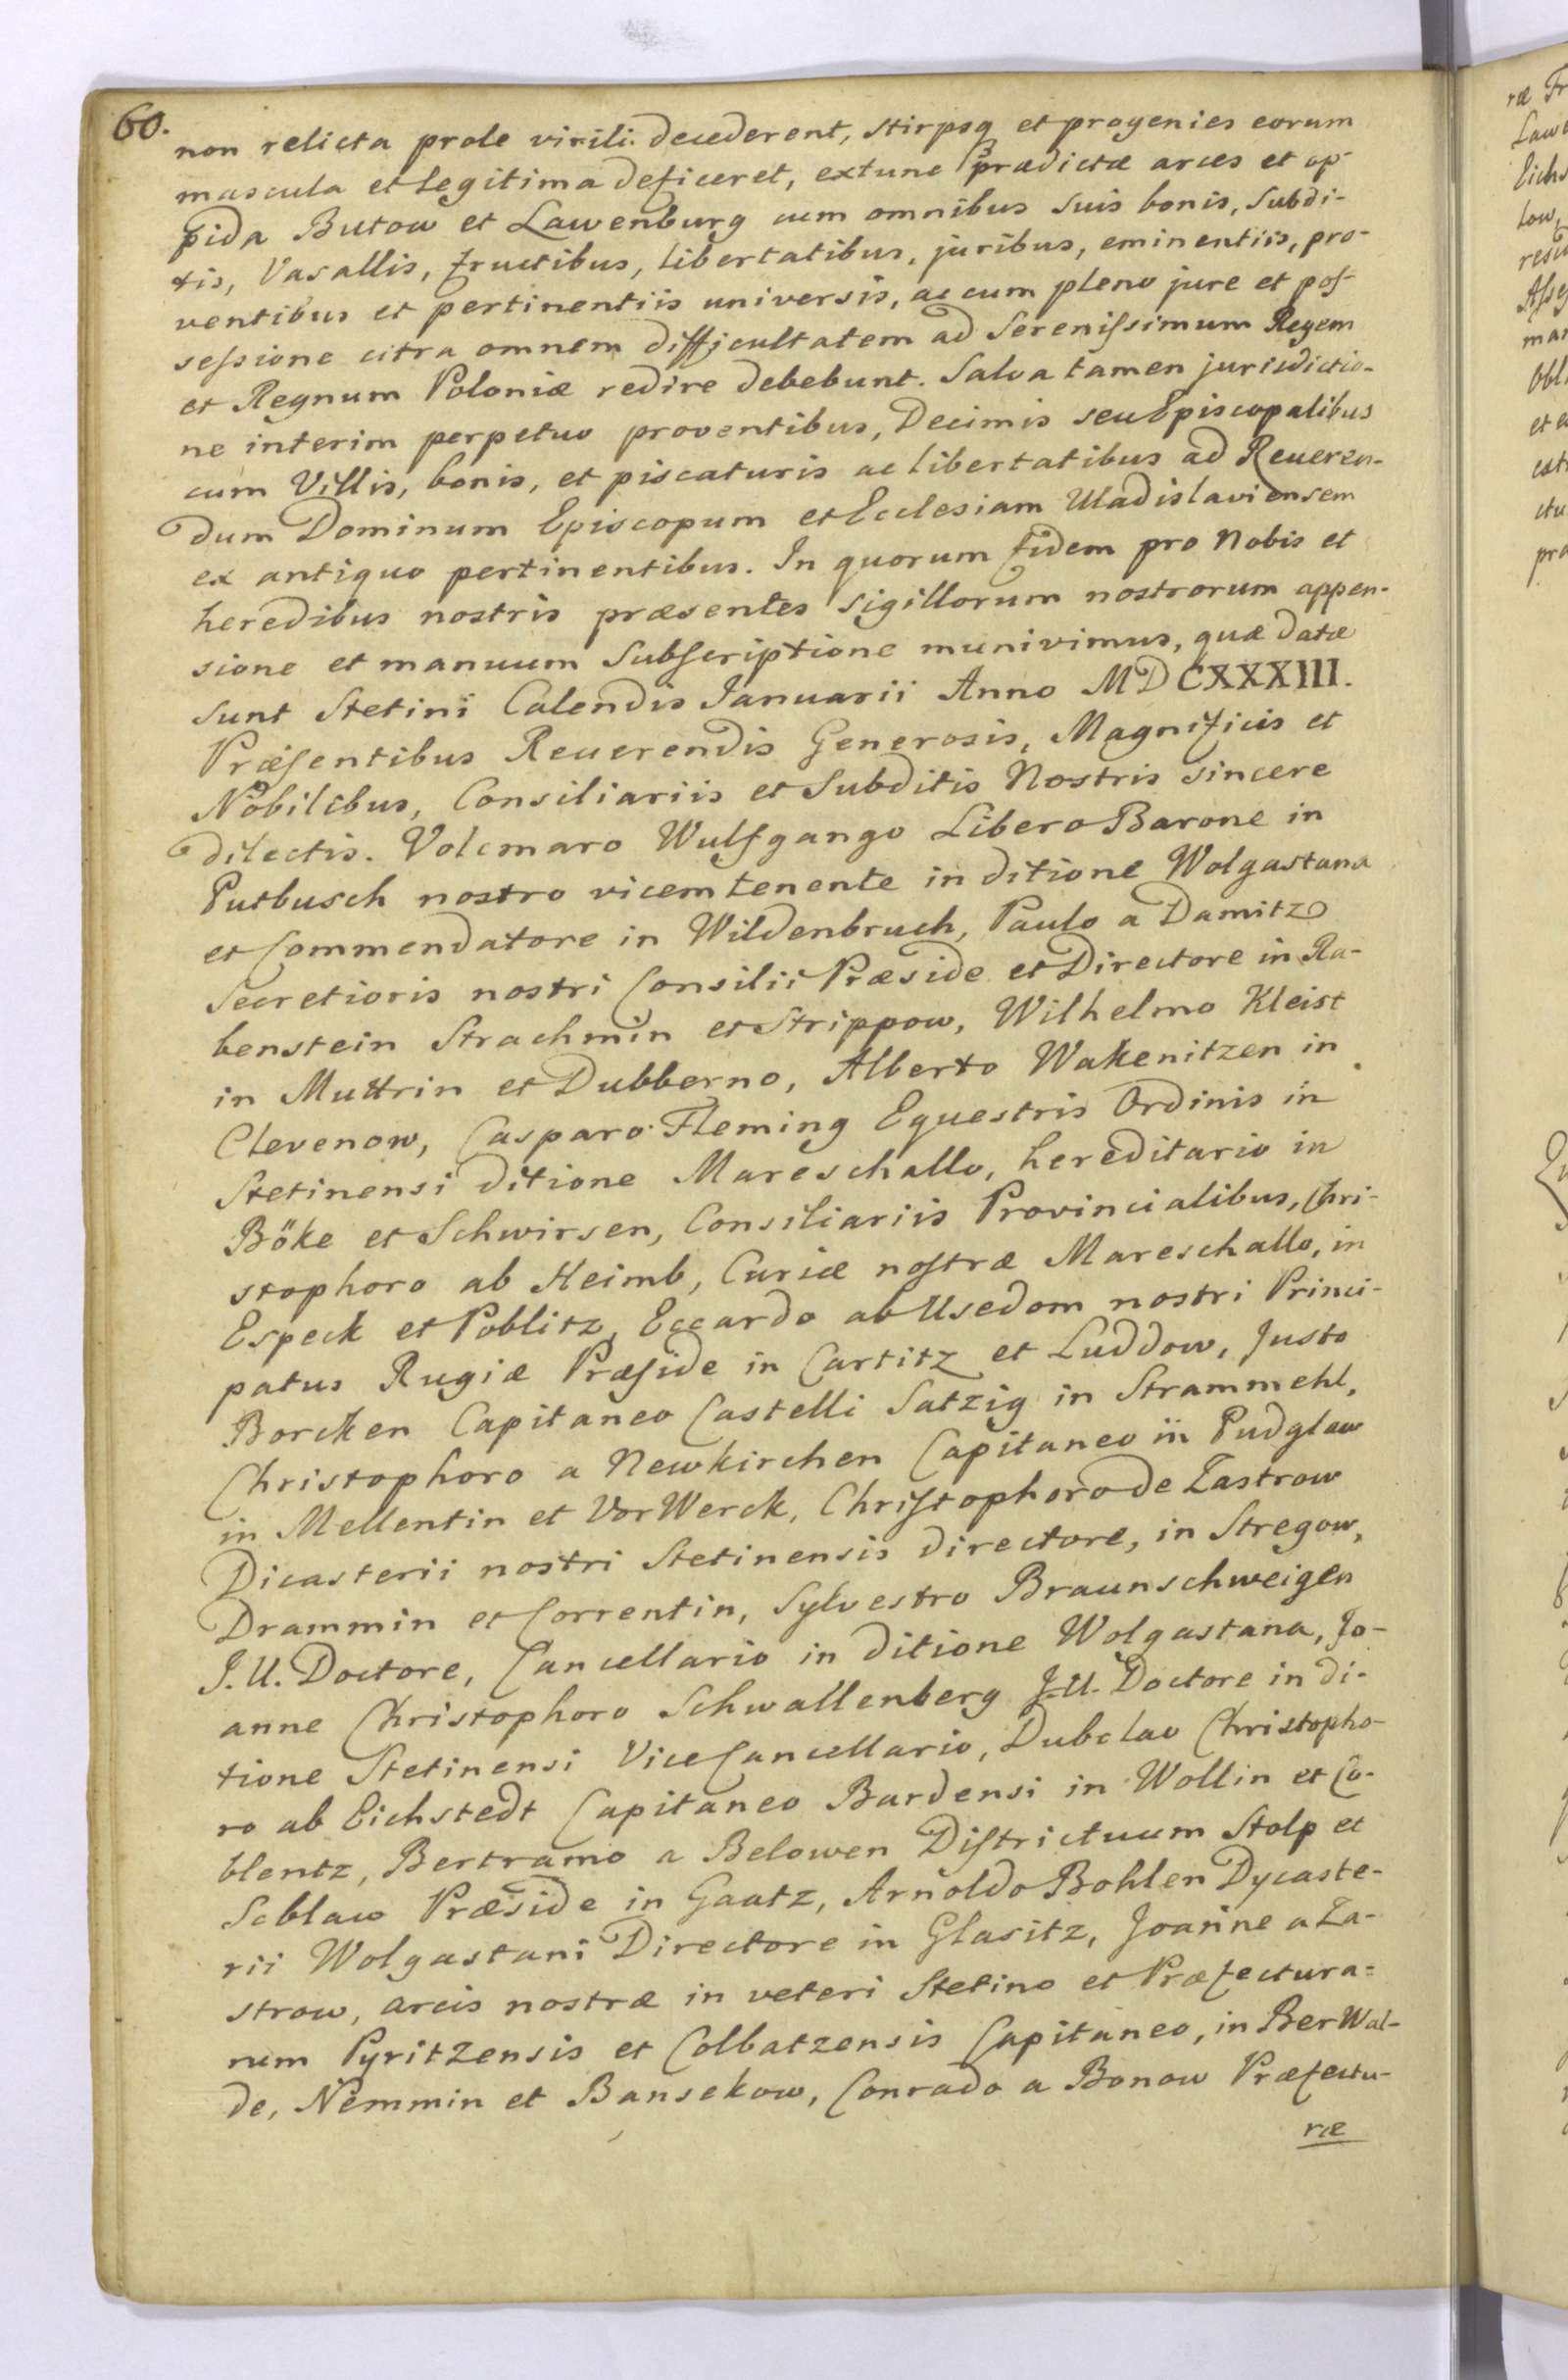 60.
non relicta prole virili decederent, stirpsq et progenies eorum
mascula et legitima deficeret, extunc prædictæ arces et op-
pida Butow et Lawenburg cum omnibus suis bonis, Subdi-
tis, Vasallis, fructibus, libertatibus, juribus, eminentiis, pro-
ventibus et pertinentiis universis, ac cum pleno jure et pos-
sessione citra omnem difficultatem ad Serenissimum Regem
et Regnum Poloniæ redire debebunt. Salva tamen jurisdictio-
ne interim perpetuo proventibus, Decimis seu Episcopalibus
cum Villis, bonis, et piscaturis ac libertatibus ad Reueren-
dum Dominum Episcopum et Ecclesiam Uladislaviensem
ex antiquo pertinentibus. In quorum fidem pro Nobis et
heredibus nostris præsentes sigillorum nostrorum appen-
sione et manuum Subscriptione munivimus, quæ datæ
sunt Stetini Calendis Januarii Anno MDCXXXIII.
Præsentibus Reuerendis Generosis, Magnificis et
Nobilibus, Consiliariis et Subditis Nostris sincere
dilectis. Volcmaro Wulfgango Libero Barone in
Putbusch nostro vicemtenente in ditione Wolgastana
et Commendatore in Wildenbruch, Paulo a Damitz
Secretioris nostri Consilii Præside et Directore in Ra-
benstein Strachmin et Strippow, Wilhelmo Kleist
in Muttrin et Dubberno, Alberto Wakenitzen in
Clevenow, Casparo Fleming Equestris Ordinis in
Stetinensi ditione Mareschallo, hereditario in
Böke et Schwirsen, Consiliariis Provincialibus, Chri-
stophoro ab Heimb, Curiæ nostræ Mareschallo, in
Especk et Poblitz, Eccardo ab Usedom nostri Princi-
patus Rugiæ Præside in Cartitz et Luddow, Justo
Borcken Capitaneo Castelli Satzig in Strammehl,
Christophoro a Newkirchen Capitaneo in Pudglaw
in Mellentin et VorWerck, Christophoro de Zastrow
Dicasterii nostri Stetinensis directore, in Stregow,
Drammin et Correntin, Sylvestro Braunschweigen
J. U. Doctore, Cancellario in ditione Wolgastana, Jo-
anne Christophoro Schwallenberg J.U. Doctore in di-
tione Stetinensi ViceCancellario, Dubclao Christopho-
ro ab Eichstedt Capitaneo Bardensi in Wollin et Co-
blentz, Bertramo a Belowen Districtuum Stolp et
Scblaw Præside in Gaatz, Arnoldo Bohlen Dycaste-
rii Wolgastani Directore in Glasitz, Joanne a Za-
strow, arcis nostræ in veteri Stetino et Præfectura=
rum Pyritzensis et Colbatzensis Capitaneo, in BerWal-
de, Nemmin et Bansekow, Conrado a Bonow Præfectu-
ræ